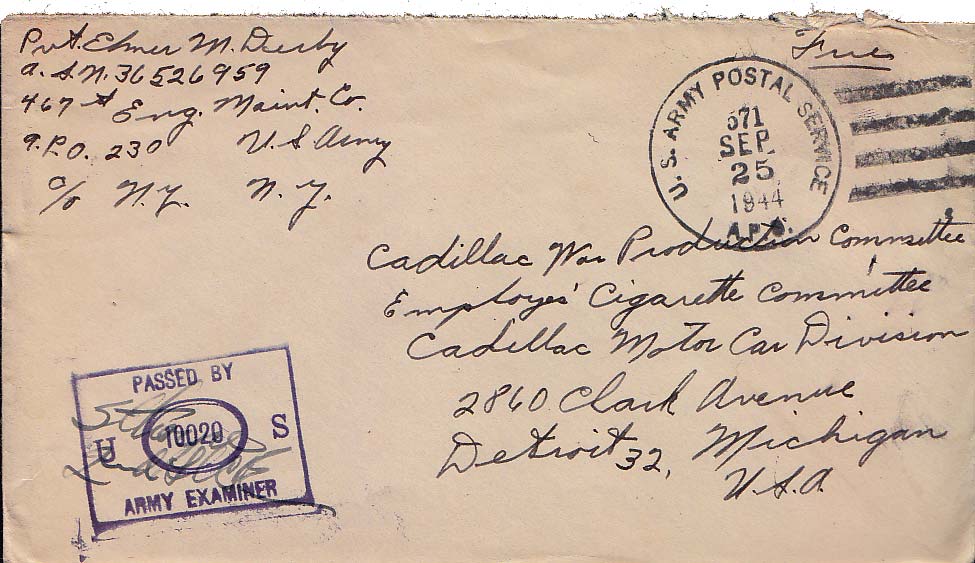 Pvt. Elmer M. Dierby
A.S.N. 36526959
467th Eng. Maint. Co.
A.P.O. 230 U.S. Army
c/o N.Y. N.Y.
Free
U.S. ARMY POSTAL SERVICE
571
SEP
25
1944
A.P.O.
Cadillac War Production Committee
Employes' Cigarette Committee
Cadillac Motor Car Division
2860 Clark Avenue
Detroit 32, Michigan
U.S.A.
PASSED BY
U 10020 S
ARMY EXAMINER